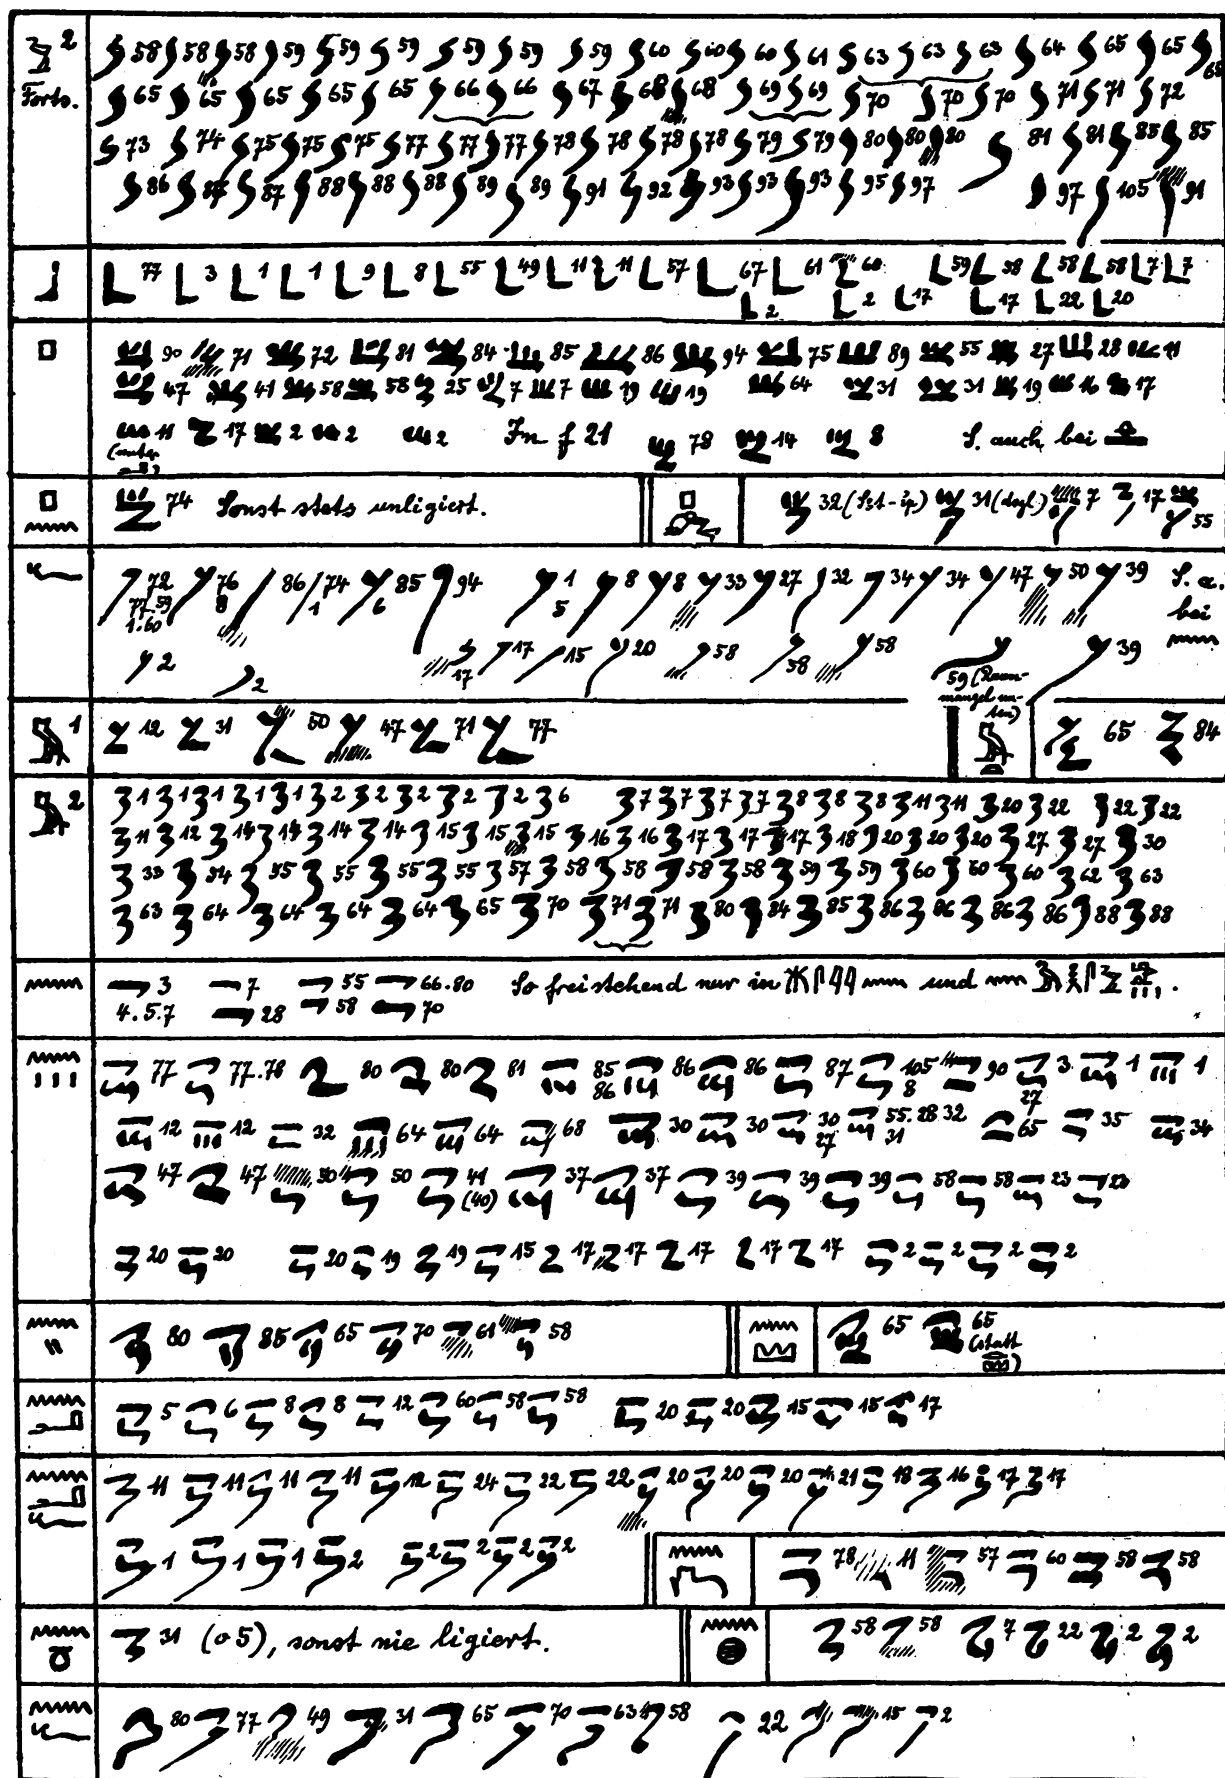 2 58 58 58 59 59 59 59 59 59 60 60 60 61 63 63 63 64 65 65 65
Forts. 65 65 65 65 65 66 66 67 68 68 69 69 70 70 70 71 71 72
73 74 75 75 75 77 77 77 78 78 78 78 79 79 80 80 80 81 81 85 85
86 87 87 88 88 88 89 89 91 92 93 93 93 95 97 97 105 91
77 3 1 1 9 8 55 49 11 11 57 67 61 60 59 58 58 58 7 7
2 2 17 17 22 20
90 71 72 81 84 85 86 94 75 89 55 27 28 11
47 41 58 58 25 7 7 19 19 64 31 31 19 16 17
11 17 2 2 2 In f 21 78 14 8 S. auch bei
(unter
74 Sonst stets unligiert.
32 31 7 17 55
72 76 86 74 85 94 1 8 8 33 27 32 34 34 47 50 39 S. a.
77.59 8 1 6 5 bei
1.60
2 2 17 17 15 20 58 58 58 39
59 (Raum-
mangel un-
ten)
1 12 31 50 47 71 77
65 84
2 1 1 1 1 1 2 2 2 2 2 6 7 7 7 7 8 8 8 11 11 20 22 22 22
11 12 14 14 14 14 15 15 15 16 16 17 17 17 18 20 20 20 27 27 30
33 54 55 55 55 55 57 58 58 58 58 59 59 60 60 60 62 63
63 64 64 64 64 65 70 71 71 80 84 85 86 86 86 86 88 88
3 7 55 66.80 So freistehend nur in und
4.5.7 28 58 70
77 77.78 80 80 81 85 86 86 87 105 90 3 1 1
86 8 27
12 12 32 64 64 68 30 30 30 55.28 32 65 35 34
27 31
47 47 50 50 41 37 37 39 39 39 58 58 23 23
(40)
20 20 20 19 19 15 17 17 17 17 17 2 2 2 2
80 85 65 70 61 58
65 65
(statt
5 6 8 8 12 60 58 58 20 20 15 15 17
11 11 11 11 12 24 22 22 20 20 20 21 18 16 17 17
1 1 1 2 2 2 2 2
78 11 57 60 58 58
31 (o 5), sonst nie ligiert.
58 58 7 22 2 2
80 77 49 31 65 70 63 58 22 15 2